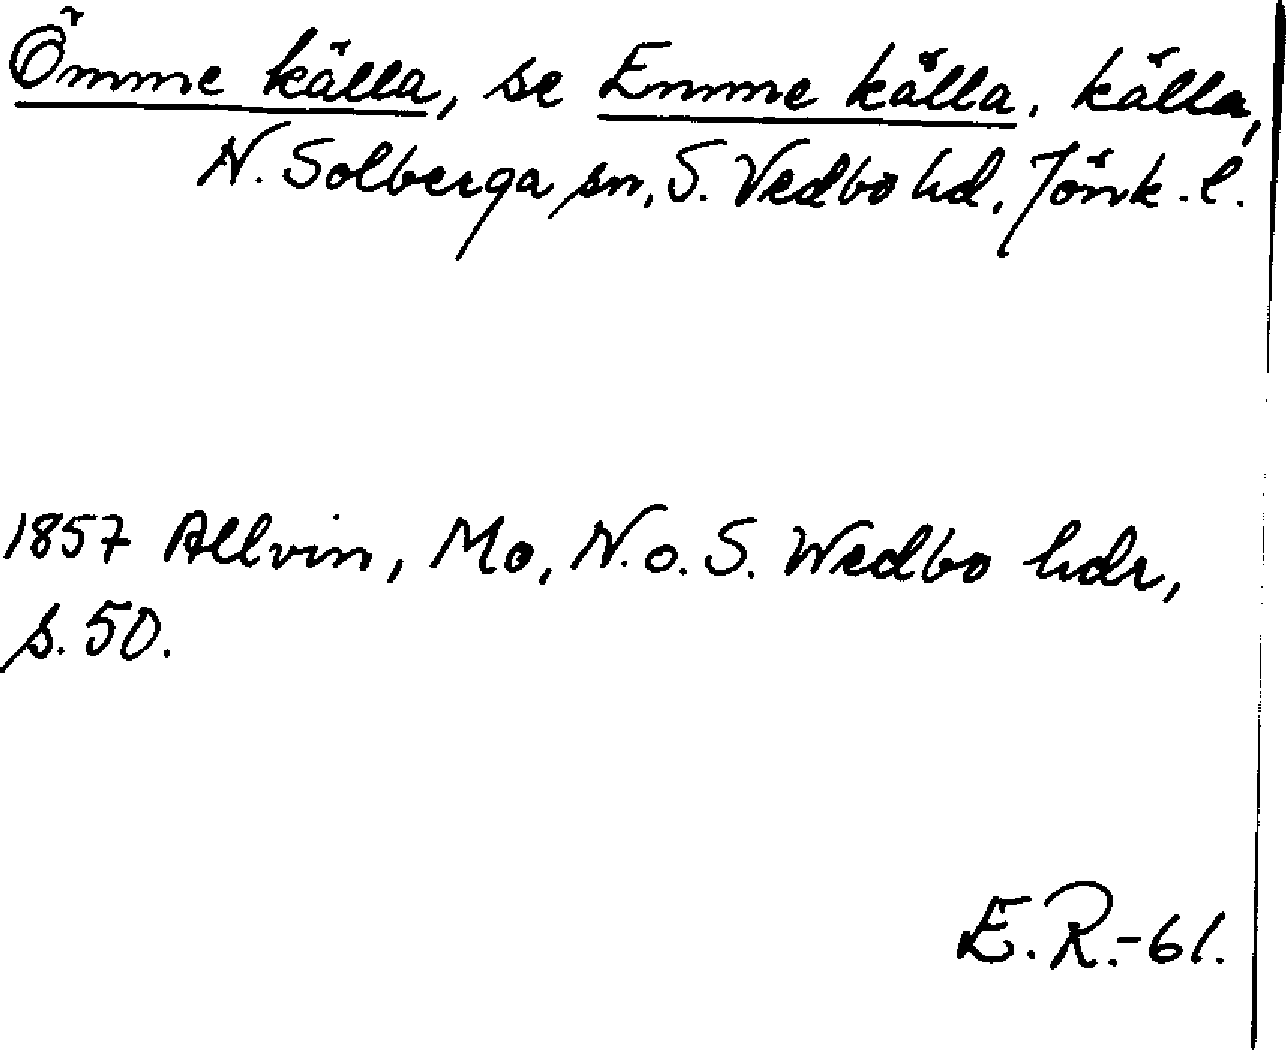 Ömme källa, se Emme källa, källa,
N. Solberga sn, S. Vedbo hd, Jönk. l.
1857 Allvin, Mo, N. o. S. Wedbo hdr,
s. 50.
E. R. -61.